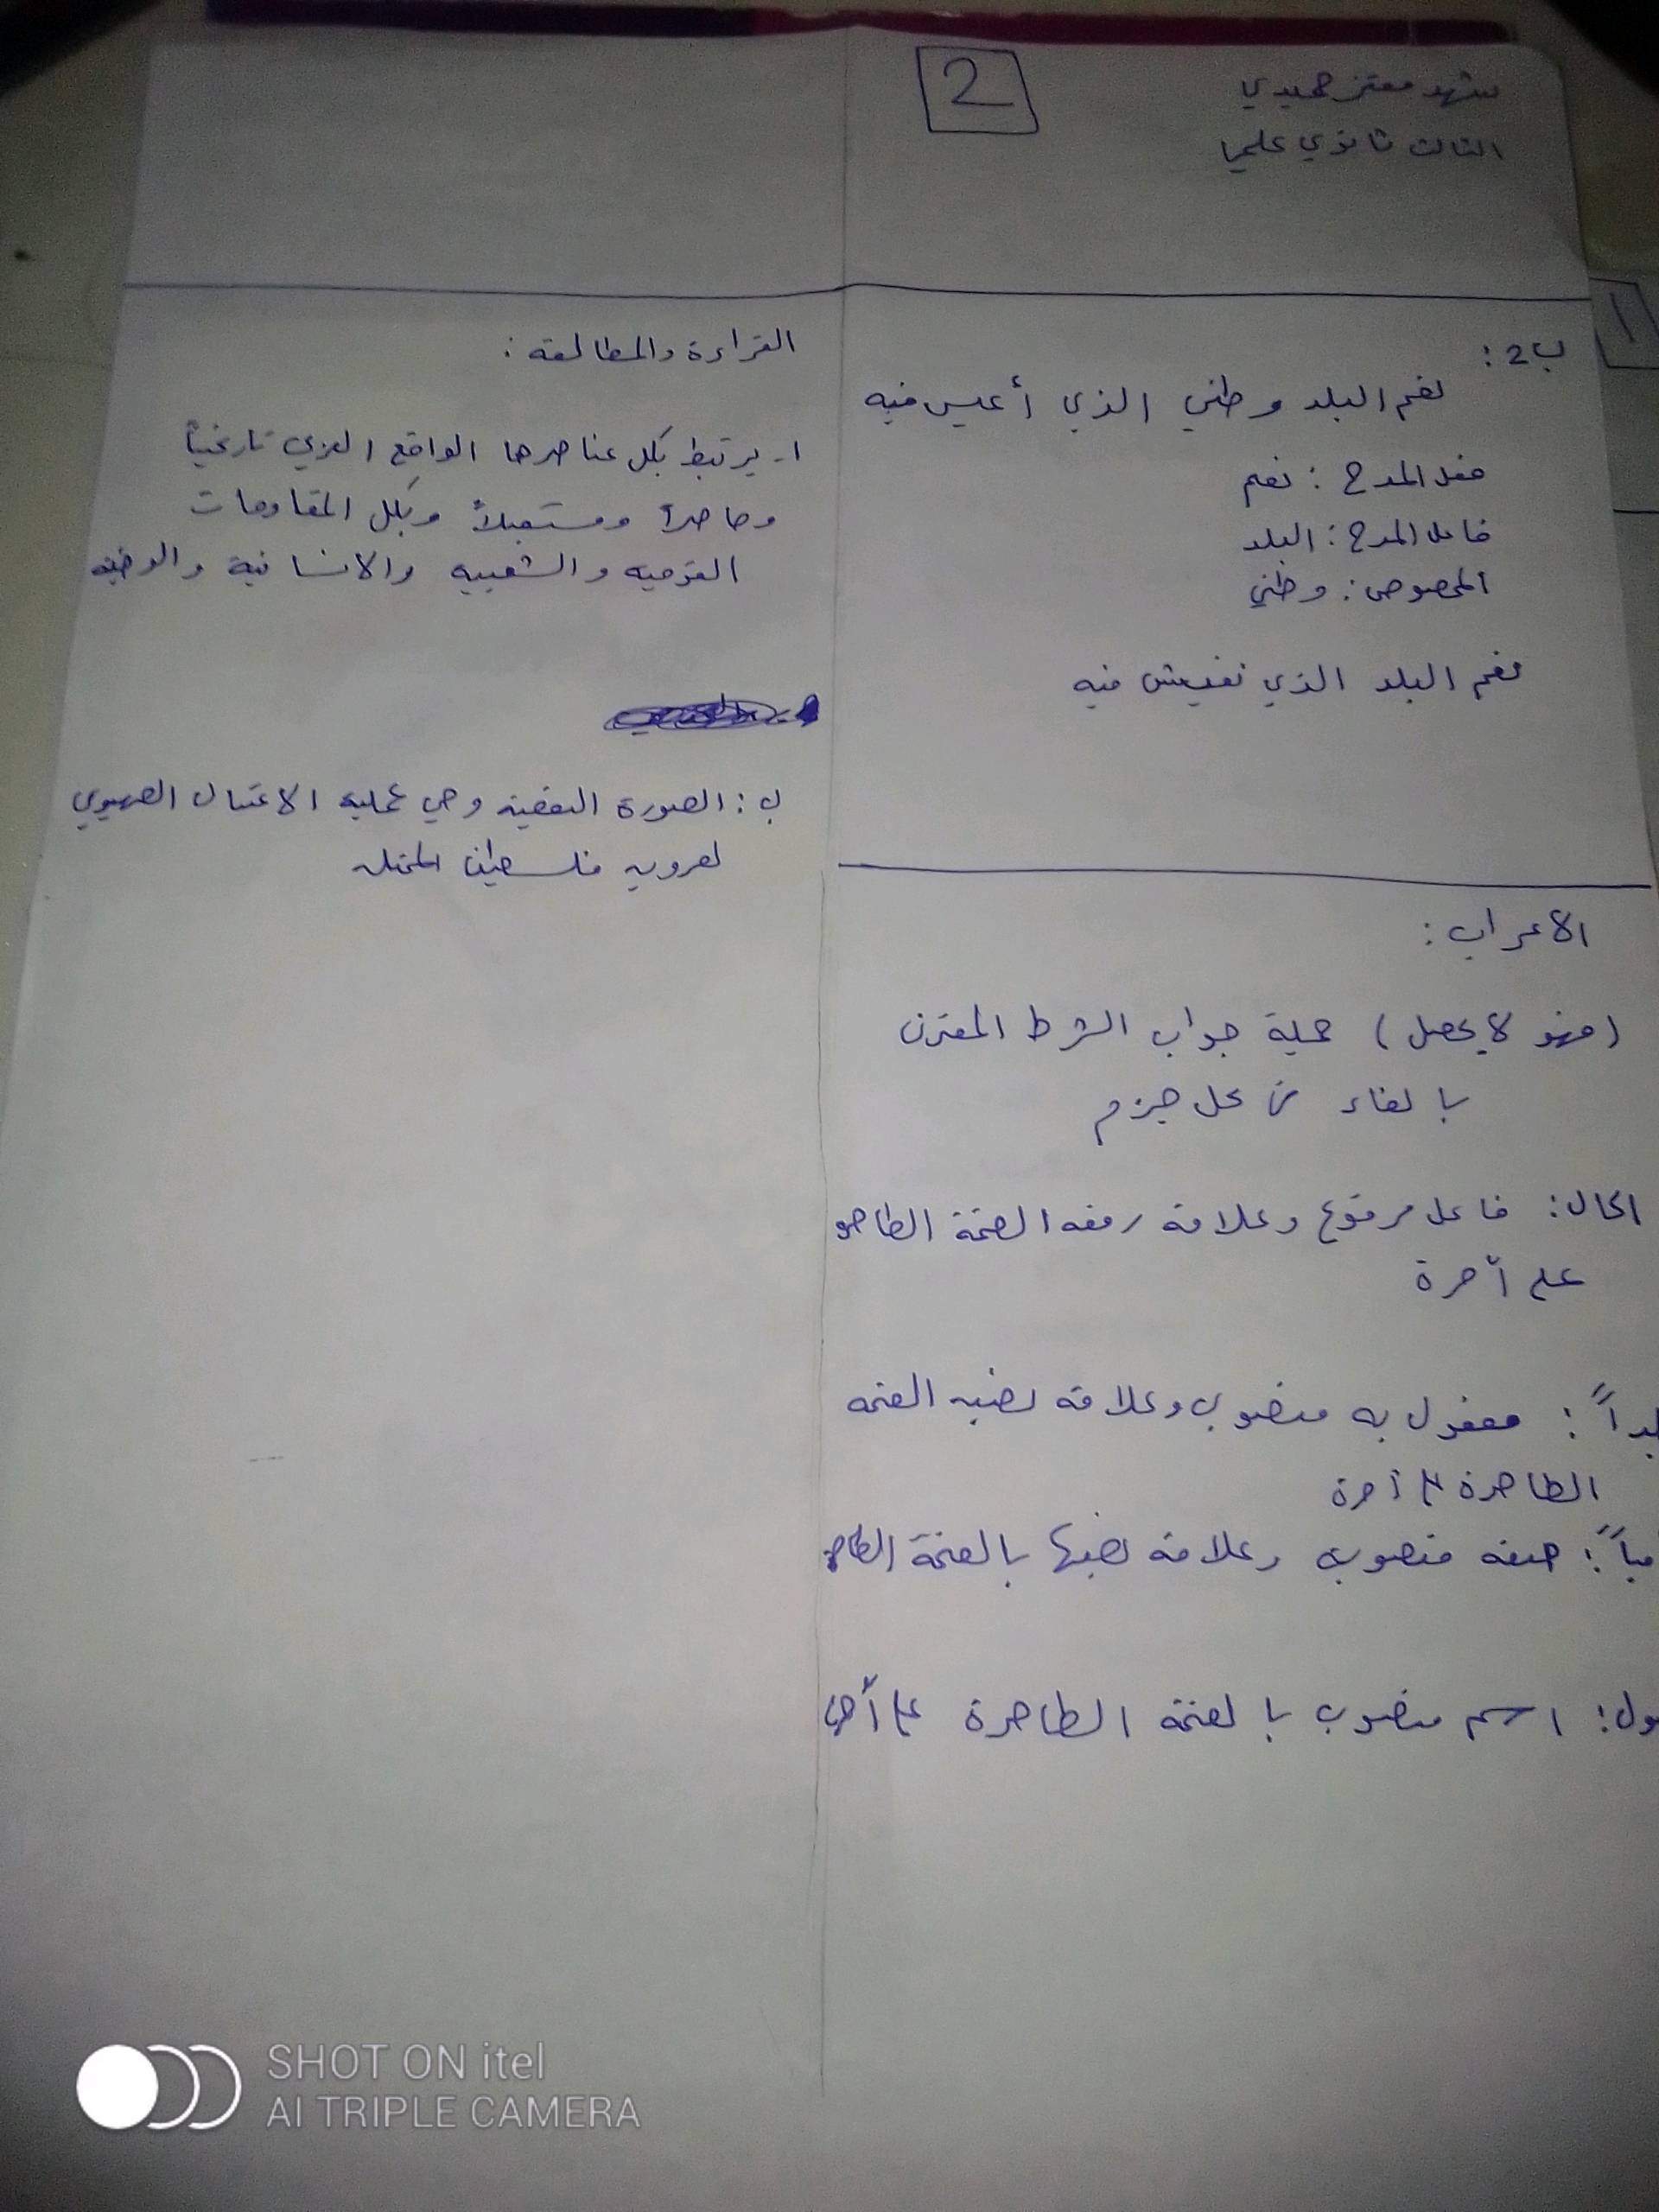 2
شهد معتز حميدي
الثالث ثانوي علمي
ب2:
نعم البلد وطني الذي أعيش فيه
فعل المدح: نعم
فاعل المدح: البلد
المخصوص: وطني
نعم البلد الذي نعيش فيه
الاعراب:
(فهو لا يحصل) جملة جواب الشرط المقترن
بالفاء في محل جزم
الحال: فاعل مرفوع وعلامة رفعه الضمة الظاهره
على آخرة
مفعول به منصوب وعلامة نصبه الفتحه
الظاهرة على آخرة
صفه منصوب وعلامة نصبها بالفتحة
اسم منصوب بالفتحة الظاهرة على آخره
القراءة والمطالعه:
1- يرتبط بكل عناصرها الواقع العربي تاريخياً
وحاضراً ومستقبلاً وبكل المقاومات
القوميه والشعبيه والانسانية والوطنيه
ب: الصورة النقضيه وهي عملية الاغتيال الصهيوني
لعروبه فلسطين المحتله
SHOT ON itel
AI TRIPLE CAMERA